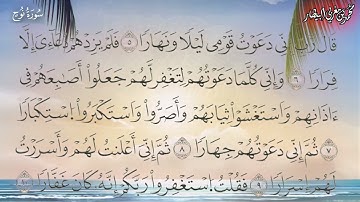 سورة نوح
قَالَ رَبِّ إِنِّي دَعَوْتُ قَوْمِي لَيْلًا وَنَهَارًا ٥ فَلَمْ يَزِدْهُمْ دُعَاءِي إِلَّا
فِرَارًا ٦ وَإِنِّي كُلَّمَا دَعَوْتُهُمْ لِتَغْفِرَ لَهُمْ جَعَلُوا أَصَابِعَهُمْ فِي
ءَاذَانِهِمْ وَاسْتَغْشَوْا ثِيَابَهُمْ وَأَصَرُّوا وَاسْتَكْبَرُوا اسْتِكْبَارًا
٧ ثُمَّ إِنِّي دَعَوْتُهُمْ جِهَارًا ٨ ثُمَّ إِنِّي أَعْلَنتُ لَهُمْ وَأَسْرَرْتُ
لَهُمْ إِسْرَارًا ٩ فَقُلْتُ اسْتَغْفِرُوا رَبَّكُمْ إِنَّهُ كَانَ غَفَّارًا ١٠